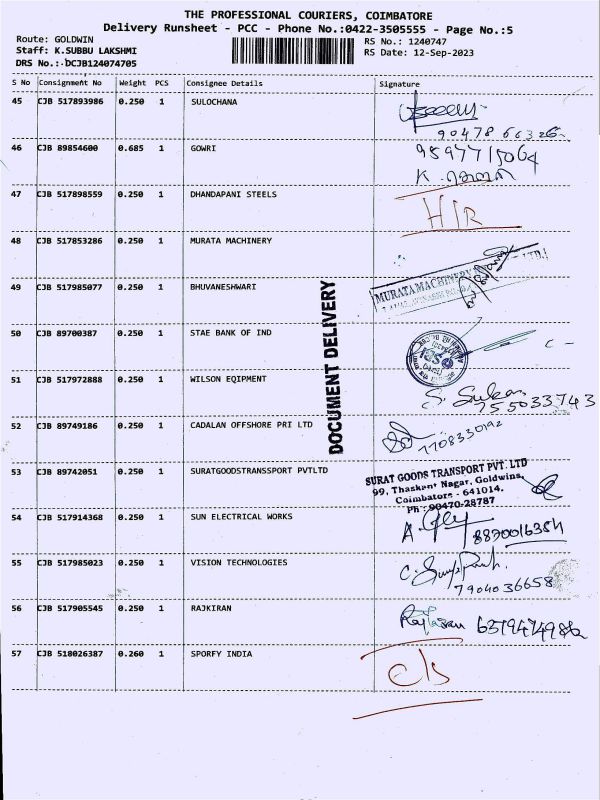 THE PROFESSIONAL COURIERS, COIMBATORE
Delivery Runsheet - PCC - Phone No.:0422-3505555 - Page No.:5
Route: GOLDWIN
RS No.: 1240747
Staff: K.SUBBU LAKSHMI
RS Date: 12-Sep-2023
DRS No.:-DCJB124074705
S No Consignment No Weight PCS Consignee Details Signature
45 CJB 517893986 0.250 1 SULOCHANA
90478 66326
46 CJB 89854600 0.685 1 GOWRI 9597715064
K.
47 CJB 517898559 0.250 1 DHANDAPANI STEELS H/R
48 CJB 517853286 0.250 1 MURATA MACHINERY
49 CJB 517985077 0.250 1 BHUVANESHWARI MURATA MACHINERY LTD.
50 CJB 89700387 0.250 1 STAE BANK OF IND
51 CJB 517972888 0.250 1 WILSON EQIPMENT
755033743
52 CJB 89749186 0.250 1 CADALAN OFFSHORE PRI LTD 7708330192
DOCUMENT DELIVERY
53 CJB 89742051 0.250 1 SURATGOODSTRANSSPORT PVTLTD SURAT GOODS TRANSPORT PVT. LTD
99, Thaskant Nagar, Goldwins,
Coimbatore - 641014.
Ph : 90470-28787
54 CJB 517914368 0.250 1 SUN ELECTRICAL WORKS
55 CJB 517985023 0.250 1 VISION TECHNOLOGIES
7904036658
56 CJB 517905545 0.250 1 RAJKIRAN
57 CJB 518026387 0.260 1 SPORFY INDIA